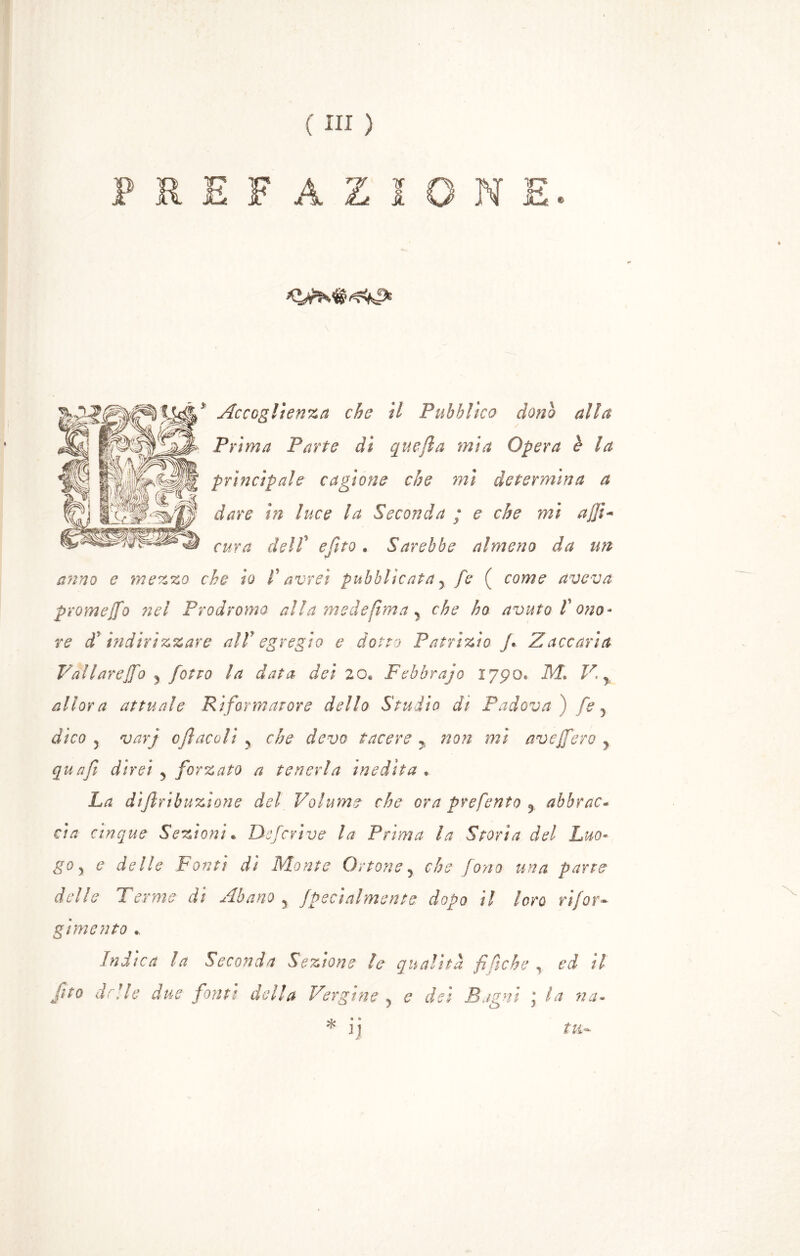 ( III )
PREFAZIONE.
L' Accoglienza che il Pubblico donò alla
Prima Parte di queſta mia Opera è la
principale cagione che mi determina a
dare in luce la Seconda ; e che mi aſſi-
cura dell' eſito . Sarebbe almeno da un
anno e mezzo che io l' avrei pubblicata, ſe ( come aveva
promeſſo nel Prodromo alla medeſima, che ho avuto l' ono-
re d' indirizzare all' egregio e dotto Patrizio J. Zaccaria
Vallareſſo , ſotto la data dei 20. Febbrajo 1790. M. V.,
allora attuale Riformatore dello Studio di Padova ) ſe,
dico , varj oſtacoli , che devo tacere , non mi aveſſero ,
quaſi direi , forzato a tenerla inedita .
La diſtribuzione del Volume che ora preſento , abbrac-
cia cinque Sezioni. Deſcrive la Prima la Storia del Luo-
go, e delle Fonti di Monte Ortone, che ſono una parte
delle Terme di Abano , ſpecialmente dopo il loro riſor-
gimento .
Indica la Seconda Sezione le qualità fiſiche , ed il
ſito delle due fonti della Vergine , e dei Bagni ; la na-
* ij
tu-